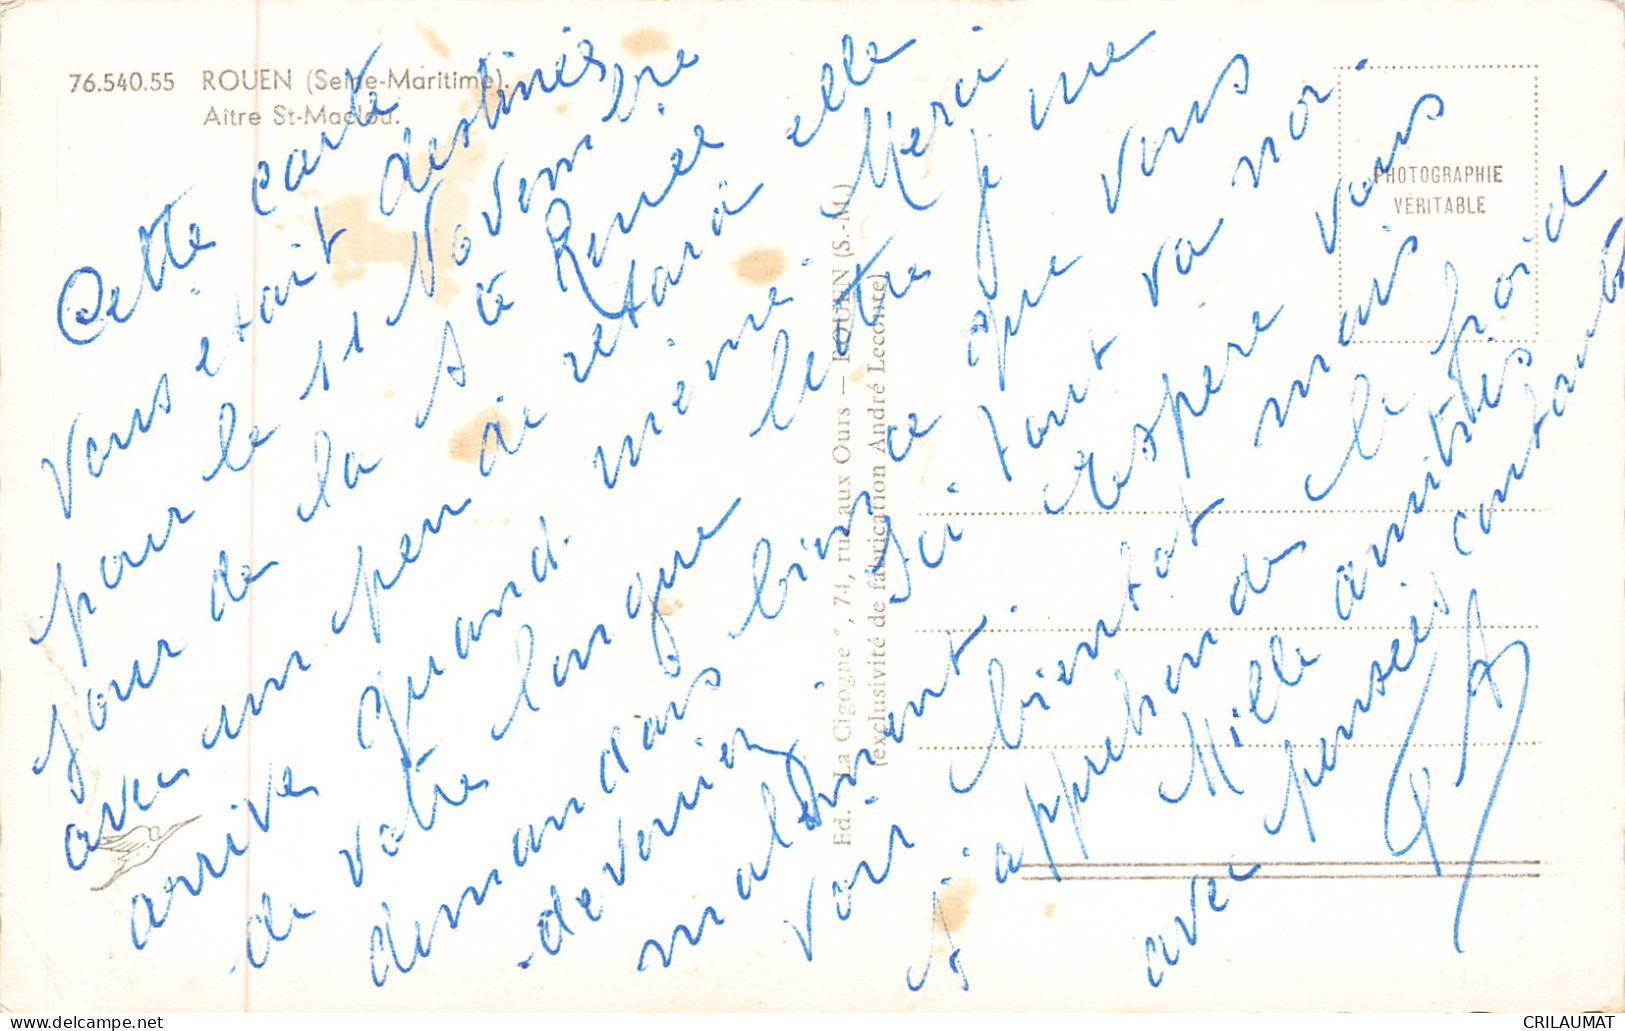 76.540.55 ROUEN (Seine-Maritime).
Aître St-Maclou.
PHOTOGRAPHIE
VÉRITABLE
Ed. "La Cigogne", 74, rue aux Ours — ROUEN (S.-M.)
(exclusivité de fabrication André Lecomte)
Cette carte
vous etait destinés
pour le 11 Novembre
jour de la Ste Renée
avec un peu de retard elle
arrive quand. même. Merci
de votre longue lettre je me
demandais bien ce que vous
deveniez Ici tout va
malmenant. Espère vous
voir bientot mais
J'apprehende le froid
Mille amitiés
avec pensées